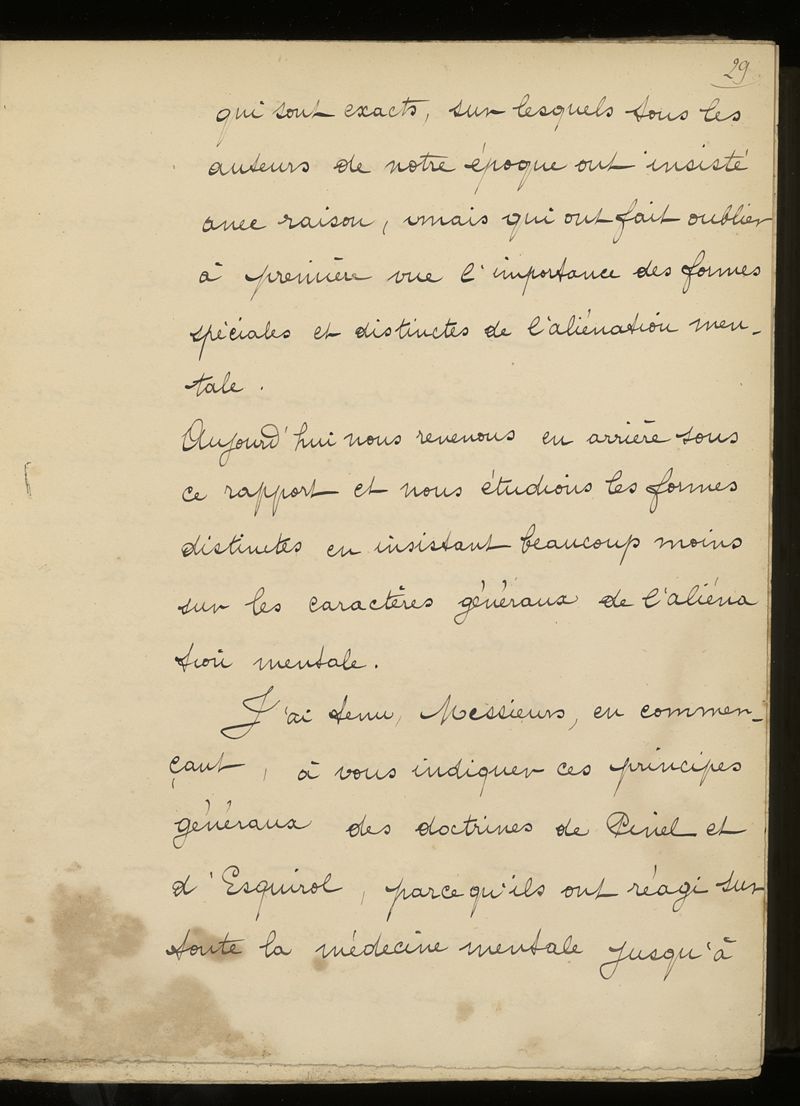 29
qui sont exacts, sur lesquels tous les
auteurs de notre époque ont insisté
avec raison, mais qui ont fait oublier
à première vue l'importance des formes
spéciales et distinctes de l'aliénation men-
tale.
Aujourd'hui nous revenons en arrière sous
ce rapport et nous étudions les formes
distinctes en insistant beaucoup moins
sur les caractères généraux de l'aliéna
tion mentale.
J'ai tenu, Messieurs, en commen-
çant, à vous indiquer ces principes
généraux des doctrines de Pinel et
d'Esquirol, parce qu'ils ont réagi sur
toute la médecine mentale jusqu'à